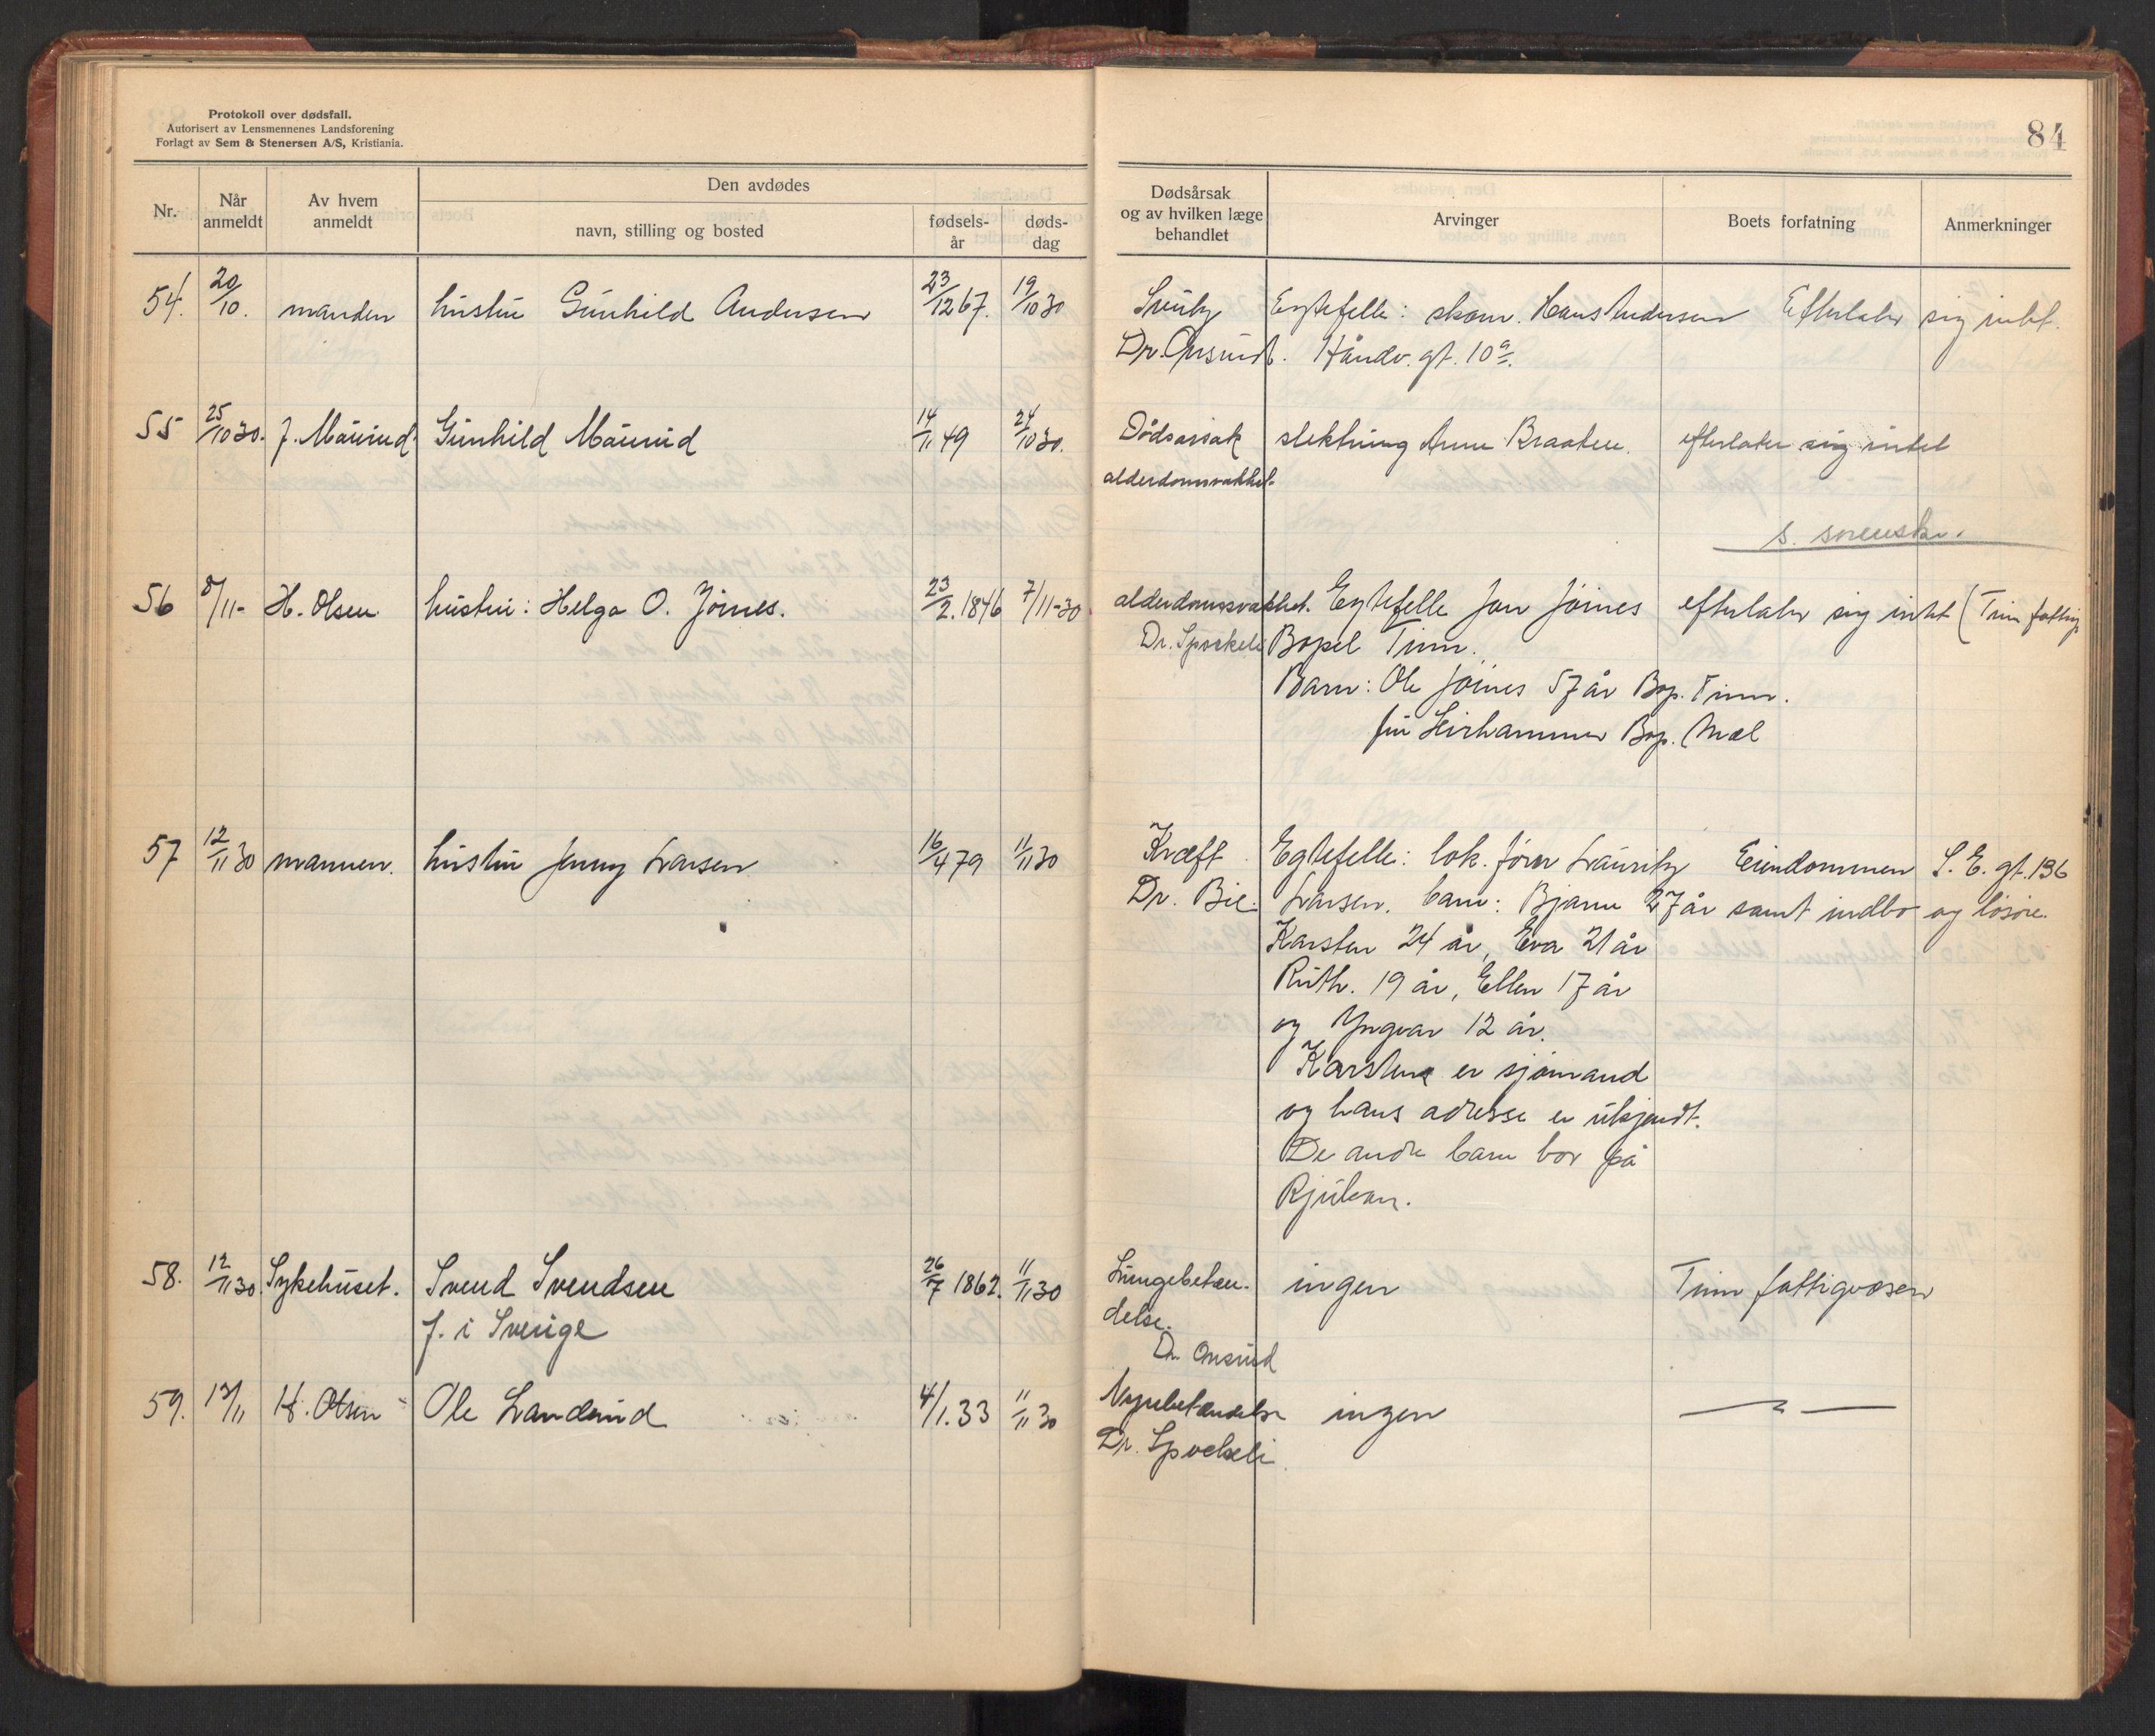 Protokoll over dødsfall.
Autorisert av Lensmennenes Landsforening
Forlagt av Sem & Stenersen A/S, Kristiania.
84
Nr.
Når anmeldt
Av hvem anmeldt
Den avdødes
navn, stilling og bosted
fødsels-år
døds-dag
Dødsårsak og av hvilken læge behandlet
Arvinger
Boets forfatning
Anmerkninger
54. 20/10. manden hustru Gunhild Andersen 23/12 67. 19/10 30 Egtefelle: skom. Hans Andersen Efterlater sig intet.
Dr. Onsrud. Håndv. gt. 10a.
55 25/10 30. J. Maurud. Gunhild Maurud 14/11 49 24/10 30. Dødsårsak slektning Anne Braaten. efterlater sig intet
alderdomssvakhet.
s. sorenskr.
56 8/11- H. Olsen hustru: Helga O. Jøines. 23/2. 1846 7/11-30 alderdomssvakhet. Egtefelle Jon Jøines efterlater sig intet (Tinn fattig
Dr. Sporkeli Bopel Tinn.
Barn: Ole Jøines 57 år Bop. Tinn.
Bop. Mæl
57 12/11 30 mannen. hustru Jenny Larsen 16/4 79 11/11 30 Kræft Egtefelle: lok. fører Lauritz Eiendommen S. E. gt. 136
Dr. Bie. Larsen. barn: Bjarne 27 år samt indbo og løsøre.
Karsten 24 år, Eva 21 år
Ruth. 19 år, Ellen 17 år
og Yngvar 12 år.
Karsten er sjømand
og hans adresse er ukjendt.
De andre barn bor på
Rjukan.
58. 12/11 30. Sykehuset. Svend Svendsen 26/7 1862. 11/11 30 Lungebetæn- ingen Tinn fattigvæsen
f. i Sverige delse.
Dr. Onsrud
59. 13/11 H. Olsen Ole Landerud 4/1. 33 11/11 30 Nyrebetændelse ingen — " —
Dr. Sporkeli